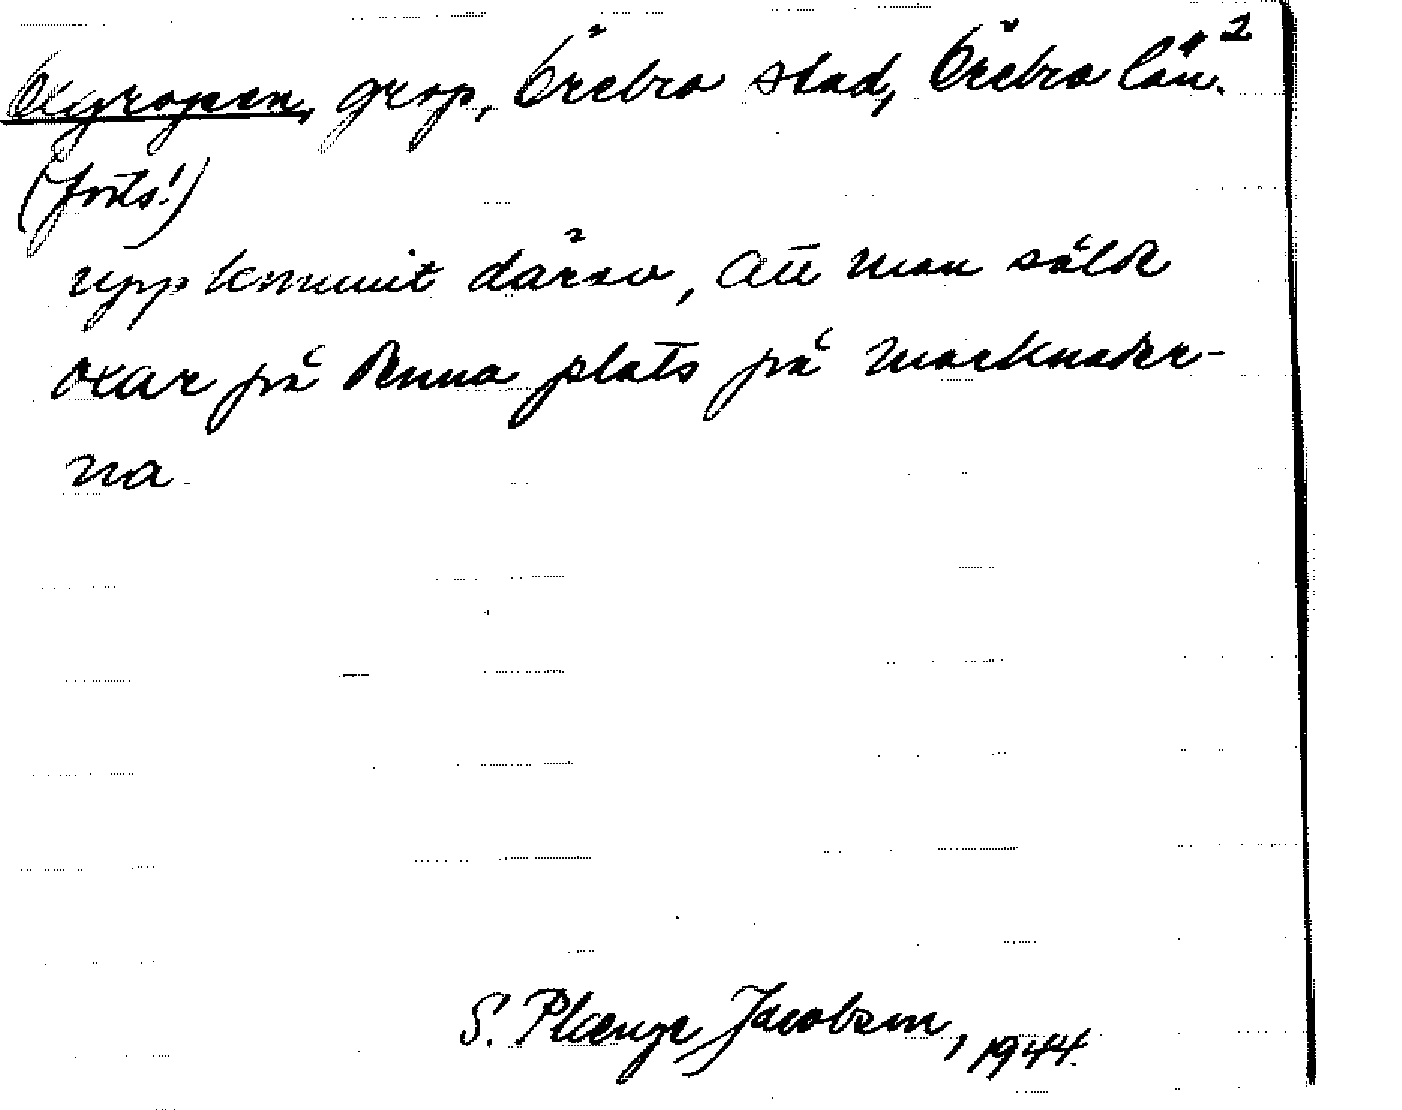 Oxgropen, grop, Örebro stad, Örebro län. 2
(forts!)
uppkommit därav, att man sålde
oxar på denna plats på marknader-
na
S. Plænge Jacobson, 1944.